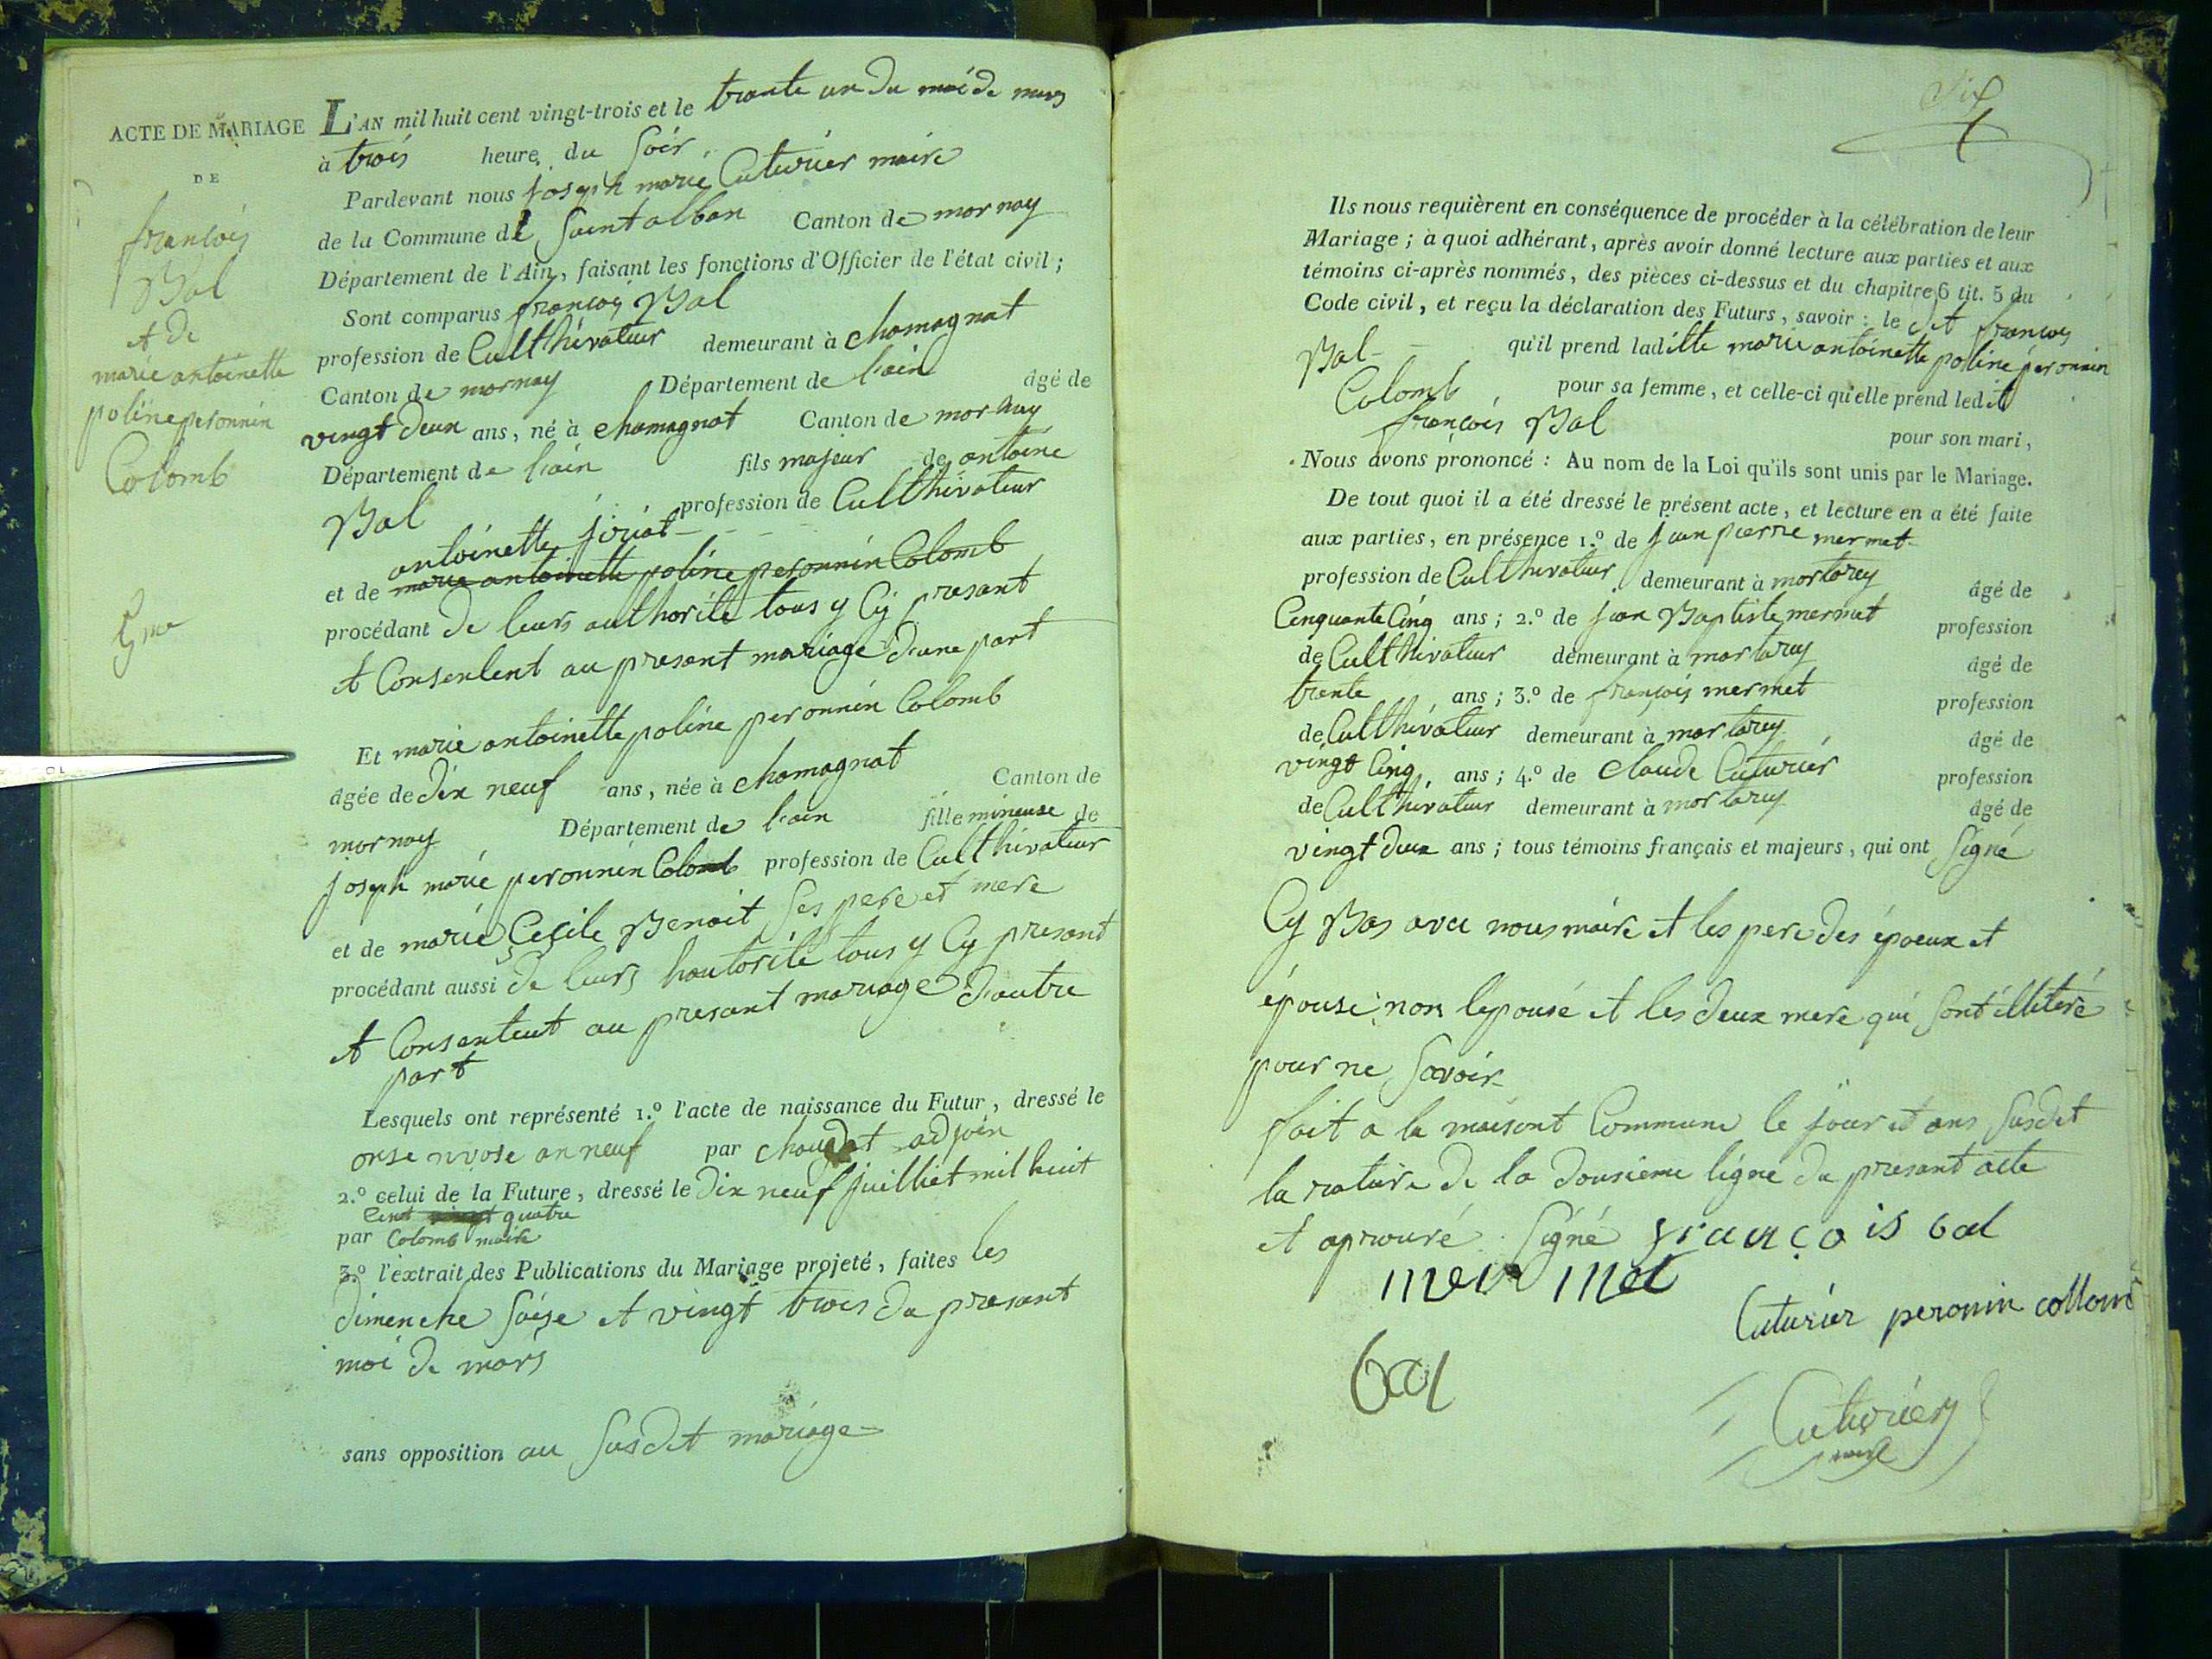 ACTE DE MARIAGE
DE
françois
Bal
et de
marie antoinette
poline peronnin
Colomb
L'AN mil huit cent vingt-trois et le trante un du moi de mars
à trois heure du soir
Pardevant nous joseph marie Cuturier maire
de la Commune de Saint alban Canton de mornay
Département de l'Ain, faisant les fonctions d'Officier de l'état civil;
Sont comparus françois Bal
profession de Cultthivateur demeurant à chamagnat
Canton de mornay Département de l'ain âgé de
vingt deux ans, né à chamagnat Canton de mornay
Département de l'ain fils majeur de antoine
Bal profession de Cultthivateur
antoinette joriat
et de marie antoinette poline peronnin Colomb
procédant de leurs authorité tous y Cy presant
et Consentent au presant mariage d'une part
Et marie antoinette poline peronnin Colomb
âgée de dix neuf ans, née à chamagnat Canton de
mornay Département de l'ain fille mineuse de
joseph marie peronnin Colomb profession de Cultthivateur
et de marie Cecile Benoit ses pere et mere
procédant aussi de leurs hautorité tous y Cy presant
et Consentent au presant mariage d'autre
part
Lesquels ont représenté 1.º l'acte de naissance du Futur, dressé le
onse nivose an neuf par adjoin
2.º celui de la Future, dressé le dix neuf juilliet mil huit
Cent vingt quatre
par Colomb maire
3.º l'extrait des Publications du Mariage projeté, faites les
dimenche saise et vingt trois du presant
moi de mars
sans opposition au susdit mariage
Six
Ils nous requièrent en conséquence de procéder à la célébration de leur
Mariage; à quoi adhérant, après avoir donné lecture aux parties et aux
témoins ci-après nommés, des pièces ci-dessus et du chapitre 6 tit. 5 du
Code civil, et reçu la déclaration des Futurs, savoir: le dit françois
Bal qu'il prend laditte marie antoinette poline peronnin
Colomb pour sa femme, et celle-ci qu'elle prend ledit
françois Bal pour son mari,
Nous avons prononcé: Au nom de la Loi qu'ils sont unis par le Mariage.
De tout quoi il a été dressé le présent acte, et lecture en a été faite
aux parties, en présence 1.º de jean pierre mermet
profession de Cultthivateur demeurant à mortarey âgé de
Cinquante Cinq ans; 2.º de jean Baptiste mermet profession
de Cultthivateur demeurant à mortarey âgé de
trente ans; 3.º de françois mermet profession
de Cultthivateur demeurant à mortarey âgé de
vingt Cinq ans; 4.º de claude Cuturier profession
de Cultthivateur demeurant à mortarey âgé de
vingt deux ans; tous témoins français et majeurs, qui ont signé
Cy Bas avec nous maire et les pere des époeux et
épouse non l'epouse et les deux mere qui sont illiteré
pour ne savoir
fait a la maisont Commune le jour et ans susdit
la rature de la dousieme ligne du presant acte
et aprouvé. signé françois bal
mermet
Cuturier peronin collomb
bal
Cuturier
maire